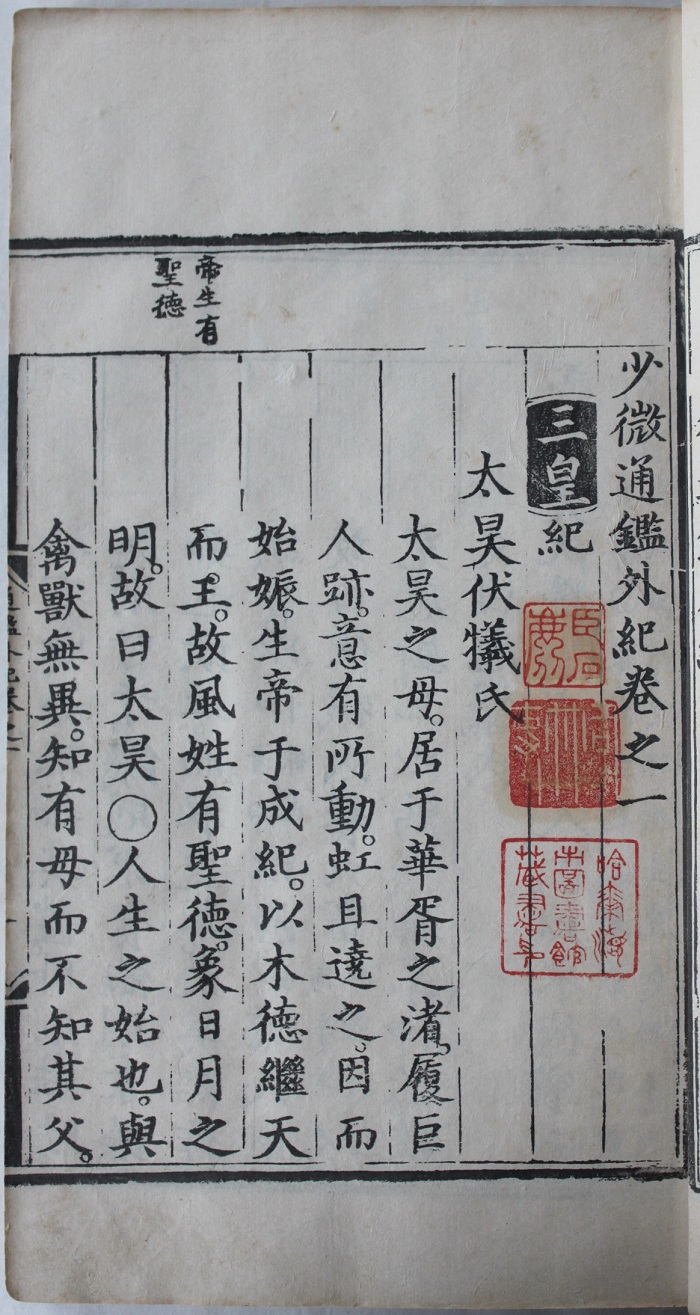 少微通鑑外紀卷之一
三皇紀
太昊伏犧氏
太昊之母。居于華胥之渚。履巨
人跡。意有所動。虹且遶之。因而
始娠。生帝于成紀。以木德繼天
而王。故風姓有聖德。象日月之
明。故曰太昊○人生之始也。與
禽獸無異。知有母而不知其父。
帝生有
聖德
哈奈海
中圖書館